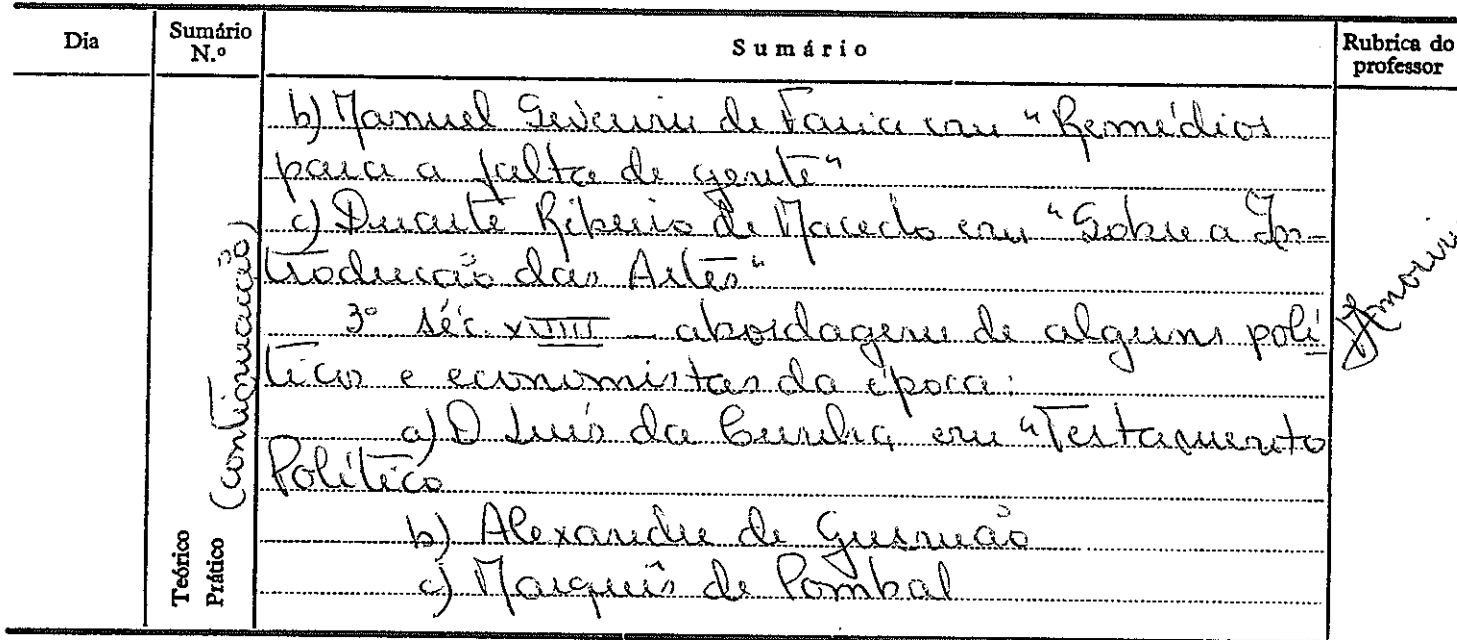 Dia
Sumário N.º
Sumário
Rubrica do professor
b) Manuel Severim de Faria em "Remédios
para a falta de gente"
c) Duarte Ribeiro de Macedo em "Sobre a In-
trodução das Artes"
3º séc. XVIII - abordagem de alguns polí
ticos e economistas da época:
a) D Luís da Cunha em "Testamento
Político
b) Alexandre de Gusmão
c) Marquês de Pombal
(continuação)
Teórico
Prático